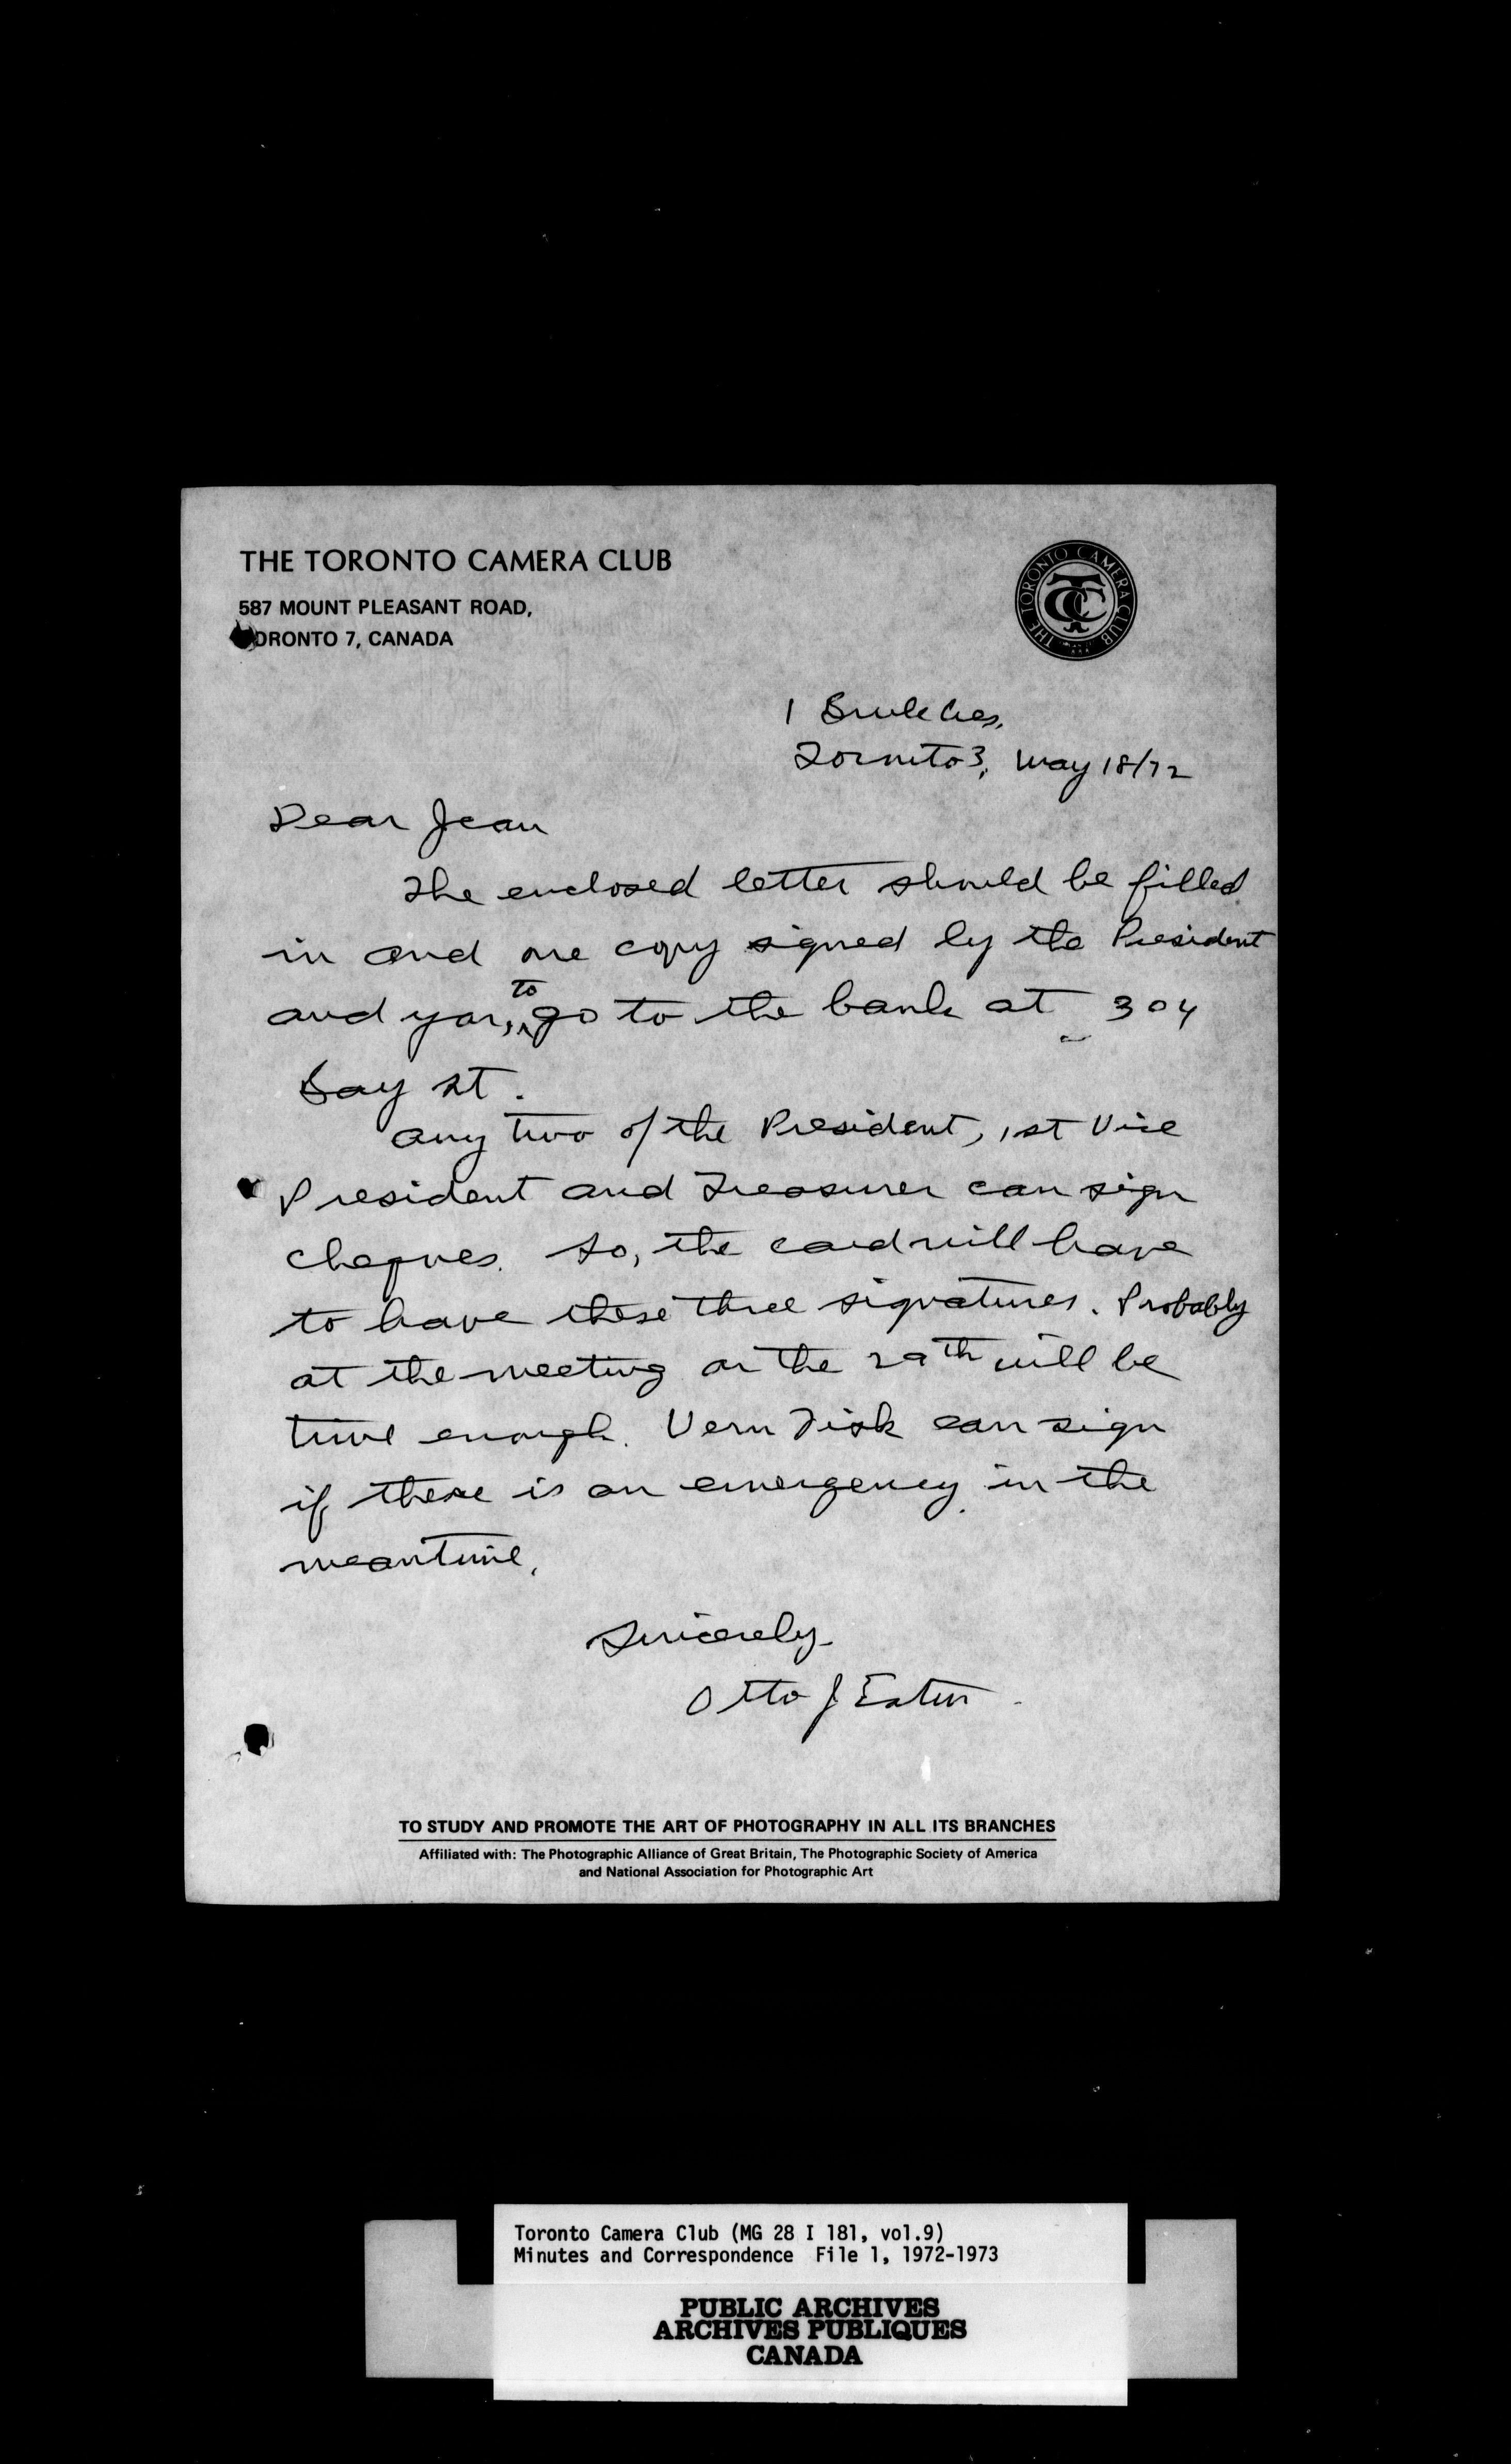 THE TORONTO CAMERA CLUB
587 MOUNT PLEASANT ROAD,
ORONTO 7, CANADA
THE TORONTO CAMERA CLUB
TCC
1
Toronto 3, May 18/72
Dear Jean
The enclosed letter should be filled
in and one copy signed by the President
to
and you, go to the bank at 304
Bay St.
Any two of the President, 1st Vice
President and Treasurer can sign
cheques. So, the card will have
to have these three signatures. Probably
at the meeting on the 29th will be
time enough. Vern Fisk can sign
if there is an emergency in the
meantime.
Sincerely
Otto J Eaton
TO STUDY AND PROMOTE THE ART OF PHOTOGRAPHY IN ALL ITS BRANCHES
Affiliated with: The Photographic Alliance of Great Britain, The Photographic Society of America
and National Association for Photographic Art
Toronto Camera Club (MG 28 I 181, vol.9)
Minutes and Correspondence File 1, 1972-1973
PUBLIC ARCHIVES
ARCHIVES PUBLIQUES
CANADA